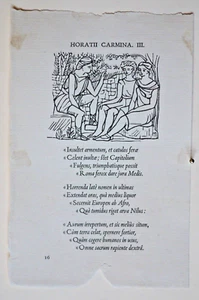 HORATII CARMINA. III.
«Insultet armentum, et catulos feræ
«Celent inultæ; stet Capitolium
«Fulgens, triumphatisque possit
«Roma ferox dare jura Medis.
«Horrenda latè nomen in ultimas
«Extendat oras, quà medius liquor
«Secernit Europen ab Afro,
«Quà tumidus rigat arva Nilus:
«Aurum irrepertum, et sic meliùs situm,
«Cùm terra celat, spernere fortior,
«Quàm cogere humanos in usus,
«Omne sacrum rapiente dextrâ.